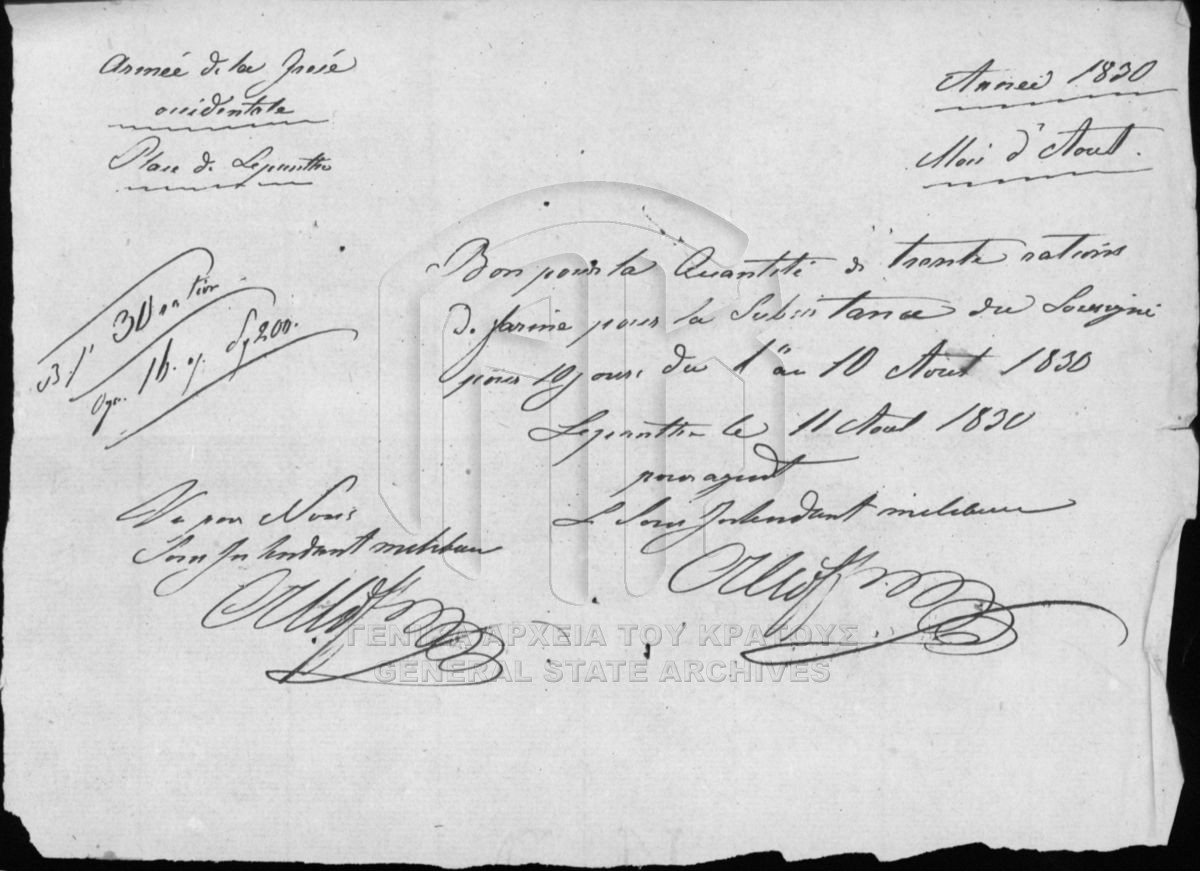 Armée de la Grece
occidentale
Place de Lepanthe
Année 1830
Mois d'Aout.
Bon pour la Quantité de trente rations
de farine pour la Subsistance du Sousigné
pour 10 jours du 1er au 10 Aout 1830
Lepanthe le 11 Aout 1830
pour aquit
Le Sous Intendant militaire
31 30 ration
16. 200.
Vu par Nous
Sous Intendant militaire
ΓΕΝΙΚΑ ΑΡΧΕΙΑ ΤΟΥ ΚΡΑΤΟΥΣ
GENERAL STATE ARCHIVES